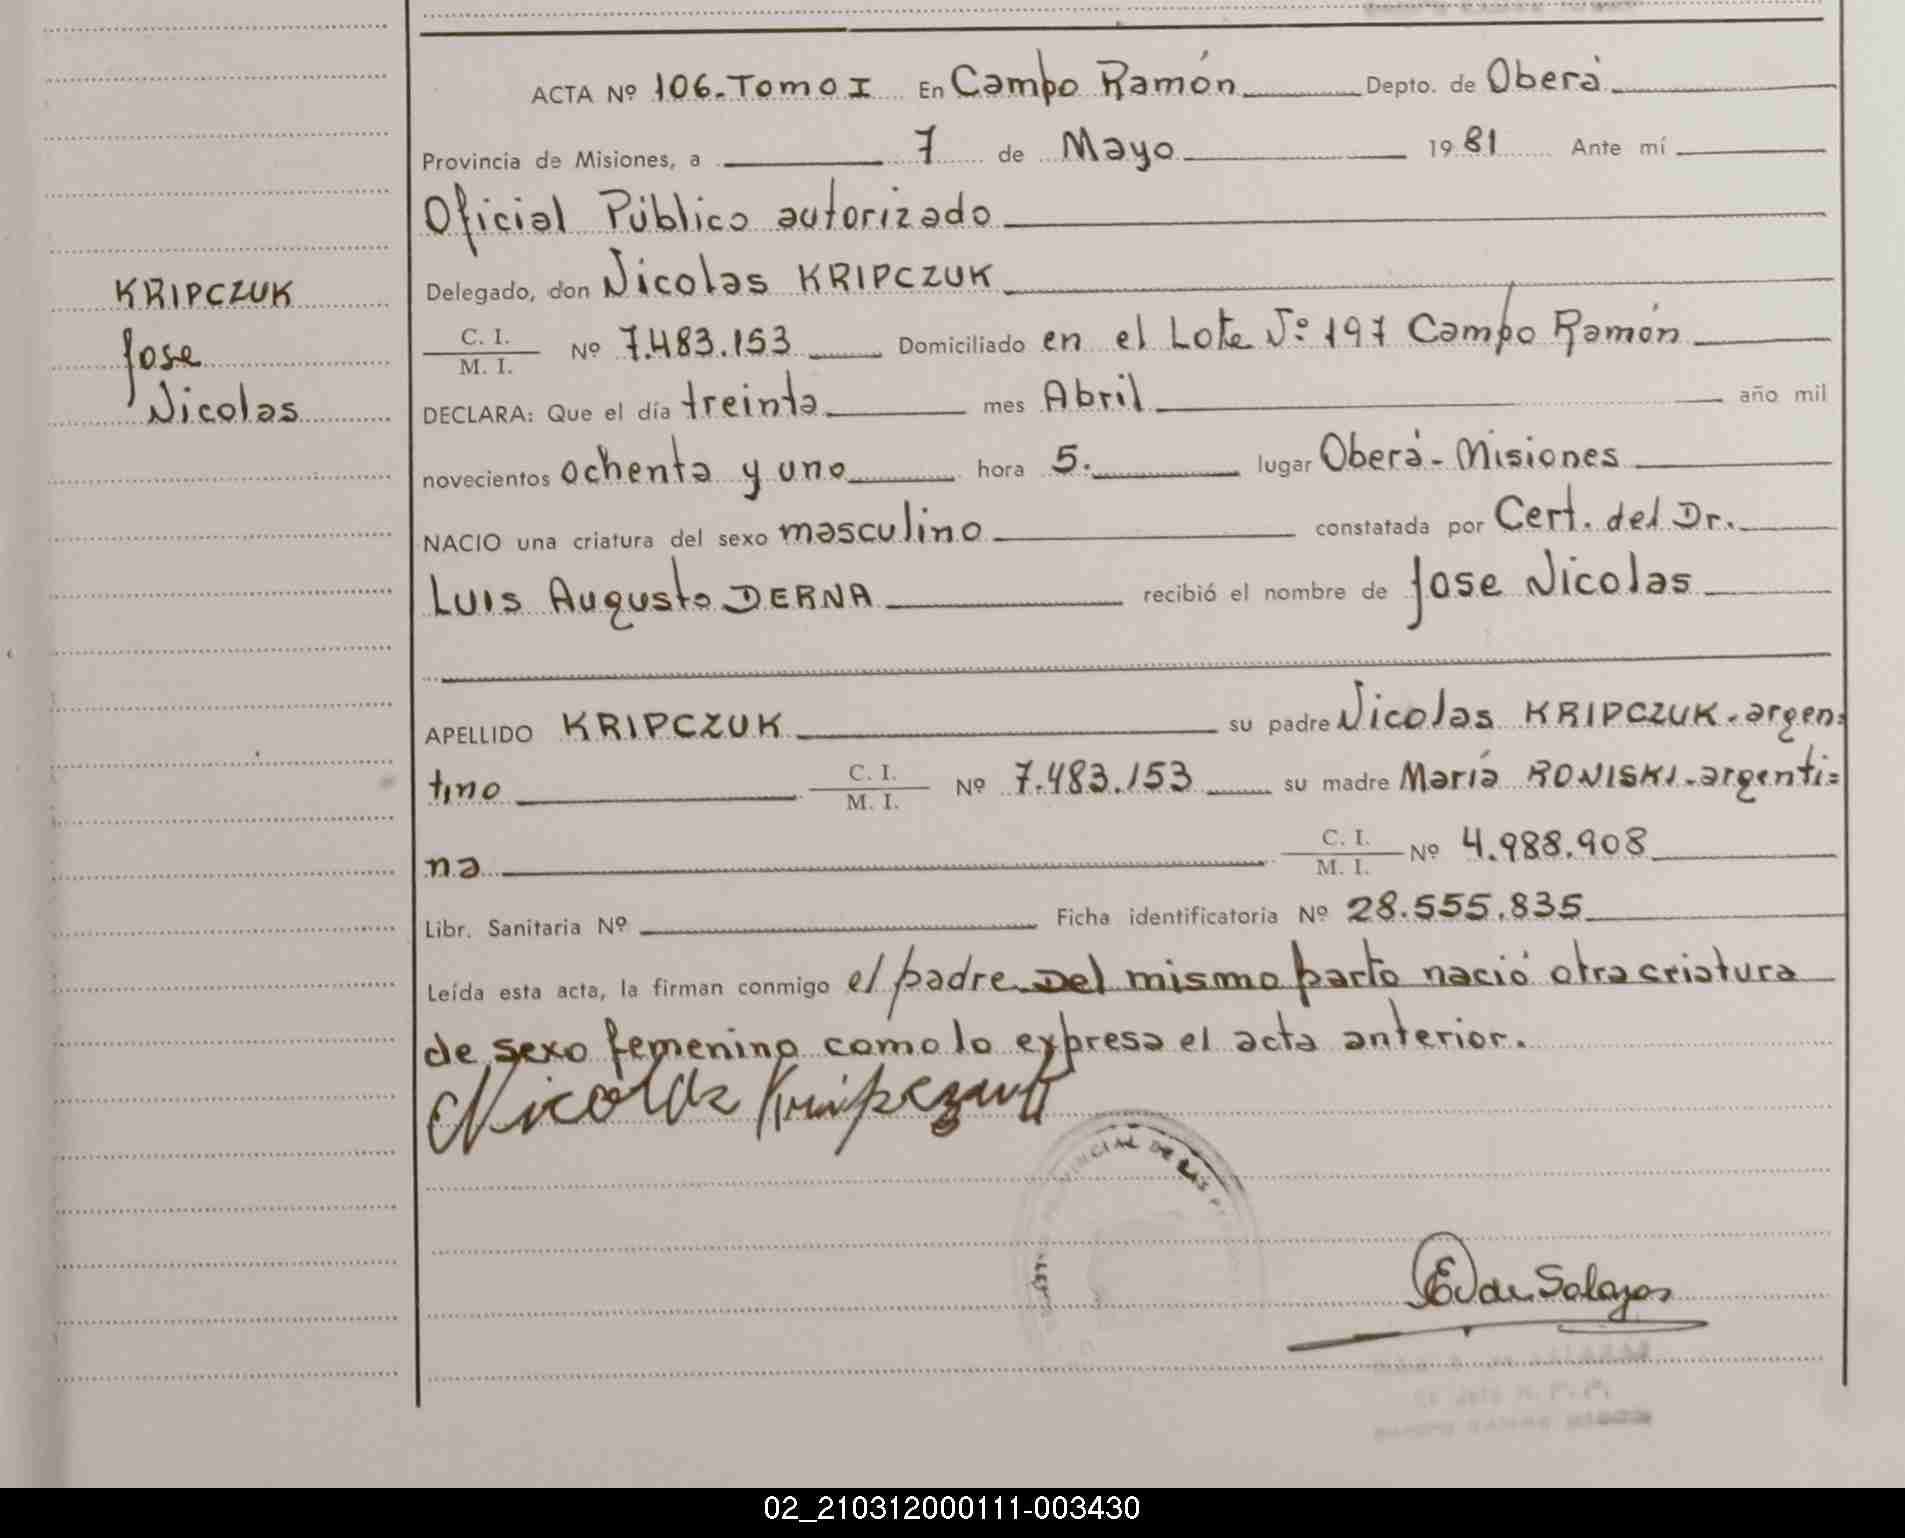 ACTA Nº 106.Tomo I En Campo Ramón Depto. de Oberá
Provincia de Misiones, a 7 de Mayo 1981 Ante mí
Oficial Público autorizado
Delegado, don Nicolas KRIPCZUK
KRIPCZUK
Jose
Nicolas
C. I.
M. I. Nº 7.483.153 Domiciliado en el Lote Nº 197 Campo Ramón
DECLARA: Que el día treinta mes Abril año mil
novecientos ochenta y uno hora 5. lugar Oberá-Misiones
NACIO una criatura del sexo masculino constatada por Cert. del Dr.
Luis Augusto DERNA recibió el nombre de Jose Nicolas
APELLIDO KRIPCZUK su padre Nicolas KRIPCZUK.argen=
tino C. I.
M. I. Nº 7.483.153 su madre María RONISKI.argenti=
na C. I.
M. I. Nº 4.988.908
Libr. Sanitaria Nº Ficha identificatoria Nº 28.555.835
Leída esta acta, la firman conmigo el padre.Del mismo parto nació otra criatura
de sexo femenino como lo expresa el acta anterior.
Nicolas
PROVINCIAL DE LAS
02_210312000111-003430